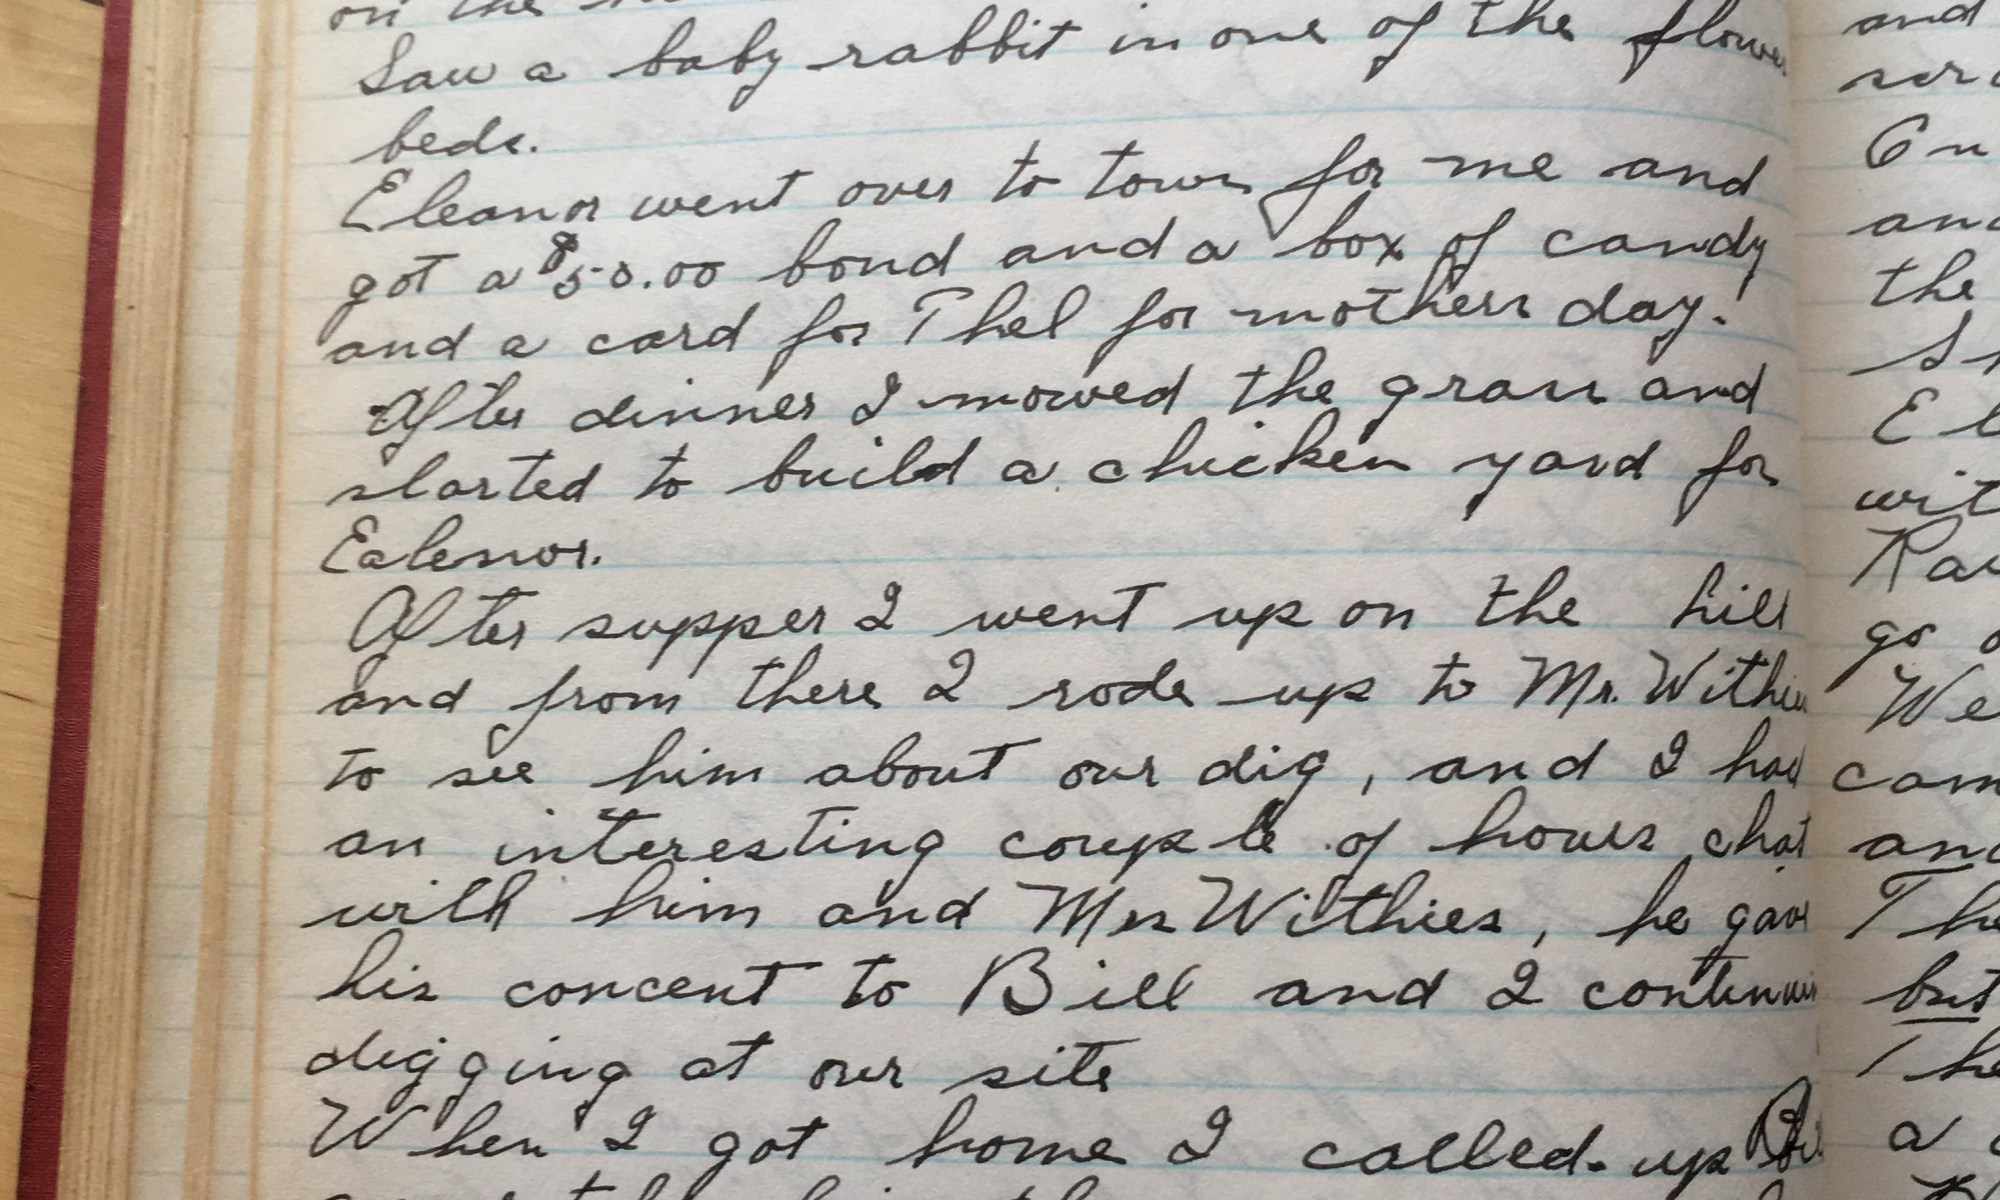 on the
Saw a baby rabbit in one of the flower
beds.
Eleanor went over to town for me and
got a $50.00 bond and a box of candy
and a card for Thel for mothers day.
After dinner I mowed the grass and
started to build a chicken yard for
Ealenor.
After supper I went up on the hill
and from there I rode up to Mr. Withies
to see him about our dig, and I had
an interesting couple of hours chat
with him and Mrs Withies, he gave
his concent to Bill and I continuing
digging at our site
When I got home I called up
and
On
and
the
El
wit
Ray
go
We
cam
and
The
but
The
a